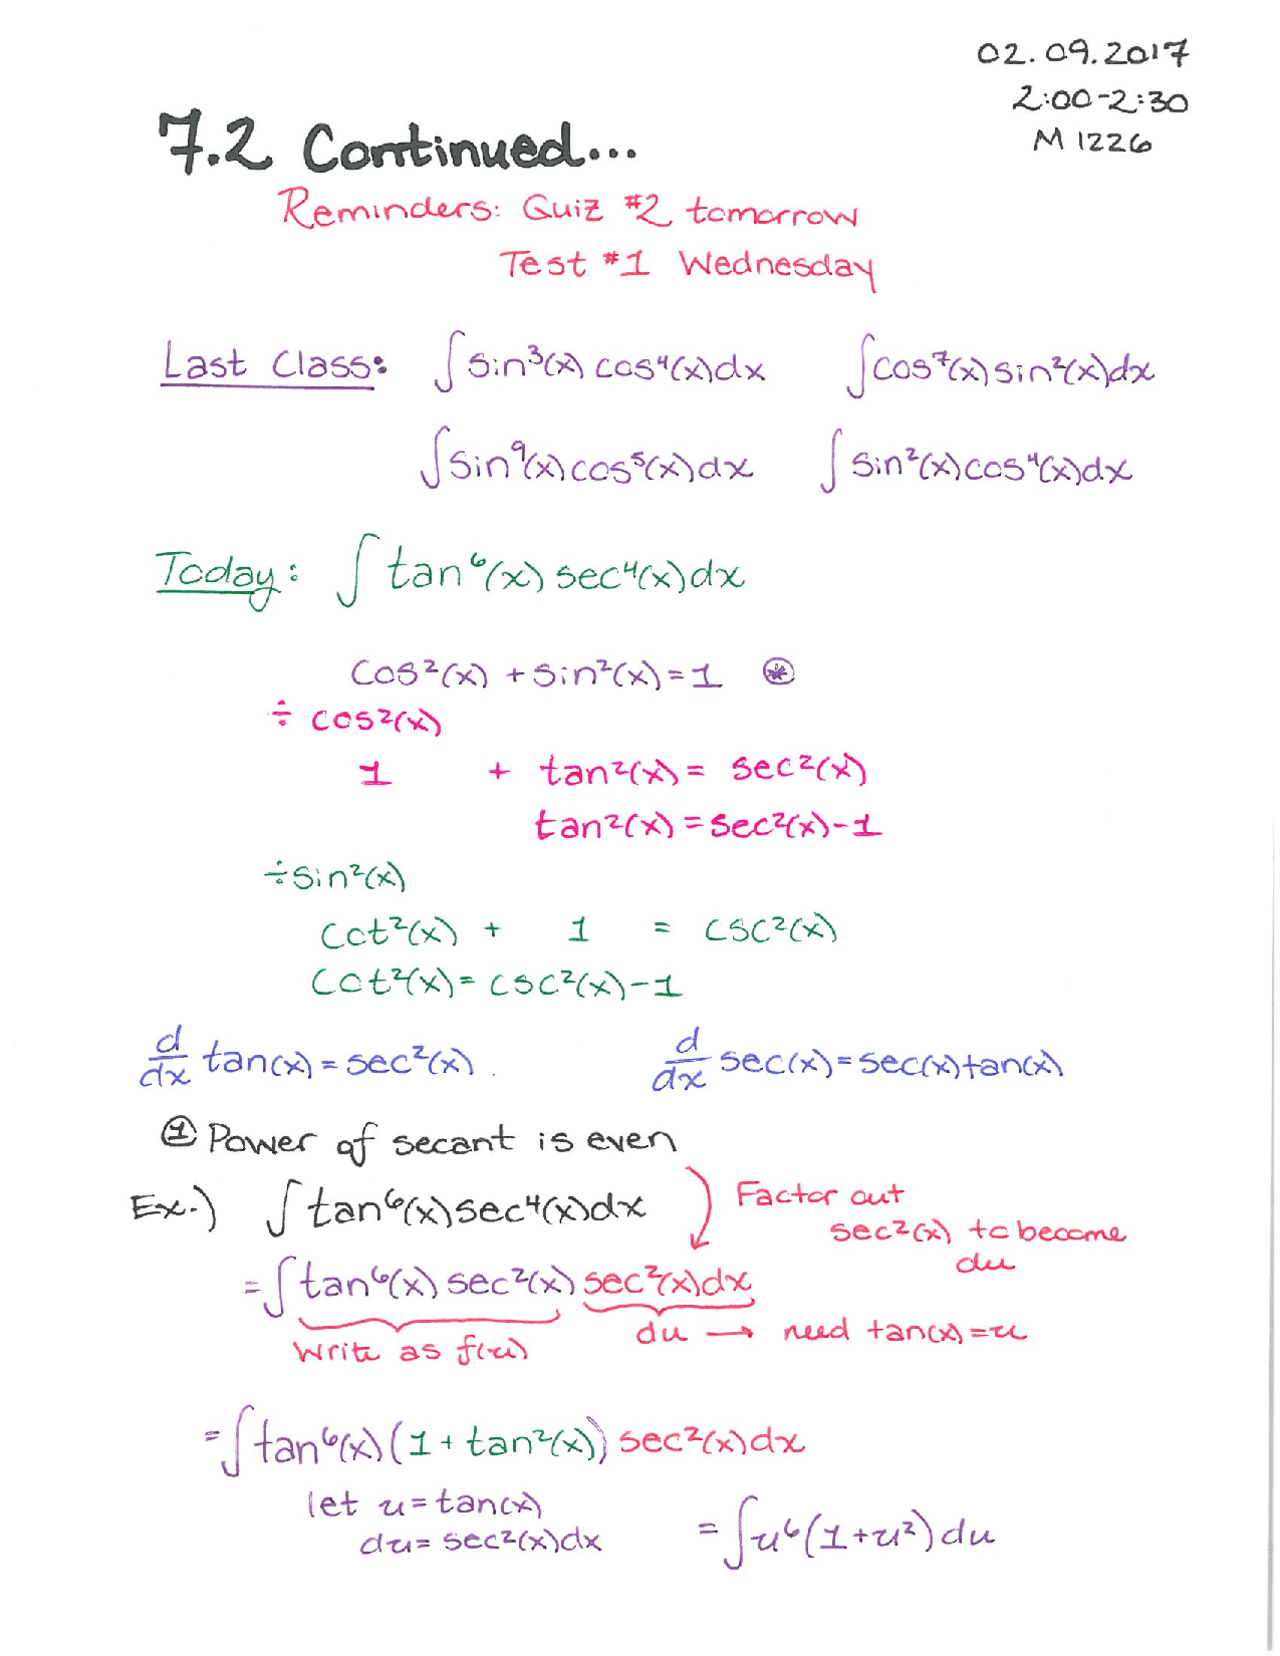 02.09.2017
2:00-2:30
M 1226
7.2 Continued...
Reminders: Quiz #2 tomorrow
Test #1 Wednesday
Last Class: ∫sin³(x) cos⁴(x)dx ∫cos⁷(x) sin²(x)dx
∫sin⁹(x)cos⁵(x)dx ∫sin²(x)cos⁴(x)dx
Today: ∫tan⁶(x) sec⁴(x)dx
cos²(x) + sin²(x) = 1 ⊛
÷ cos²(x)
1 + tan²(x) = sec²(x)
tan²(x) = sec²(x)-1
÷sin²(x)
cot²(x) + 1 = csc²(x)
cot²(x) = csc²(x)-1
d/dx tan(x) = sec²(x). d/dx sec(x) = sec(x)tan(x)
① Power of secant is even
Ex.) ∫tan⁶(x)sec⁴(x)dx Factor out
sec²(x) to become
du
= ∫tan⁶(x) sec²(x) sec²(x)dx
write as f(u) du → need tan(x)=u
= ∫tan⁶(x)(1 + tan²(x)) sec²(x)dx
let u = tan(x)
du = sec²(x)dx = ∫u⁶(1+u²)du